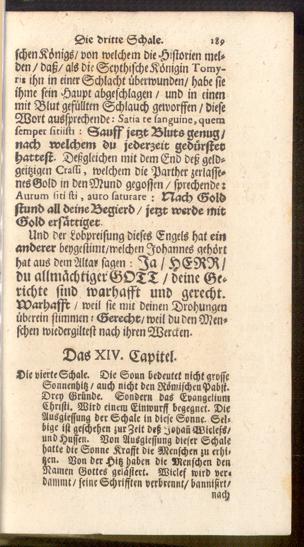 Die dritte Schale. 189
schen Königs/ von welchem die Historien mel-
den/ daß/ als die Scythische Königin Tomy-
ris ihn in einer Schlacht überwunden/ habe sie
ihme sein Haupt abgeschlagen/ und in einen
mit Blut gefüllten Schlauch geworffen/ diese
Wort aussprechende: Satia te sanguine, quem
semper sitiisti: Sauff jetzt Bluts genug/
nach welchem du jederzeit gedürstet
hattest. Deßgleichen mit dem End deß geld-
geitzigen Crassi, welchem die Parther zerlasse-
nes Gold in den Mund gegossen/ sprechende:
Aurum sitiisti, auro saturare: Nach Gold
stund all deine Begierd/ jetzt werde mit
Gold ersättiget.
Und der Lobpreisung dieses Engels hat ein
anderer beygestimt/ welchen Johannes gehört
hat aus dem Altar sagen: Ja/ HERR/
du allmächtiger GOTT/ deine Ge-
richte sind warhafft und gerecht.
Warhafft/ weil sie mit deinen Drohungen
überein stimmen: Gerecht/ weil du den Men-
schen wiedergiltest nach ihren Wercken.
Das XIV. Capitel.
Die vierte Schale. Die Sonn bedeutet nicht grosse
Sonnenhitz/ auch nicht den Römischen Pabst.
Drey Gründe. Sondern das Evangelium
Christi. Wird einem Einwurff begegnet. Die
Ausgiessung der Schale in diese Sonne. Sel-
bige ist geschehen zur Zeit deß Johañ Wiclefs/
und Hussen. Von Ausgiessung dieser Schale
hatte die Sonne Krafft die Menschen zu erhi-
tzen. Von der Hitz haben die Menschen den
Namen Gottes gelästert. Wiclef wird ver-
dammt/ seine Schrifften verbrennt/ bannisirt/
nach